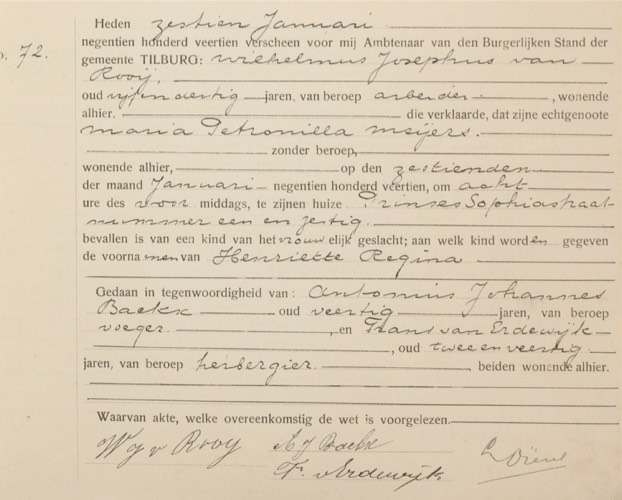 Heden zestien Januari
negentien honderd veertien verscheen voor mij Ambtenaar van den Burgerlijken Stand der
o. 72. gemeente TILBURG: Wilhelmus Josephus van
Rooij,
oud vijf en dertig jaren, van beroep arbeider, wonende
alhier. die verklaarde, dat zijne echtgenoote
Maria Petronilla Meijers.
zonder beroep,
wonende alhier, op den zestienden
der maand Januari negentien honderd veertien, om acht
ure des voor middags, te zijnen huize Prinses Sophiastraat
nummer een en zestig.
bevallen is van een kind van het vrouwelijk geslacht; aan welk kind worden gegeven
de voornamen van Henriette Regina
Gedaan in tegenwoordigheid van: Antonius Johannes
Baekx oud veertig jaren, van beroep
voeger., en Frans van Erdewijk
, oud twee en veertig
jaren, van beroep herbergier. beiden wonende alhier.
Waarvan akte, welke overeenkomstig de wet is voorgelezen.
W J v Rooy A J Baekx
F. v Erdewijk